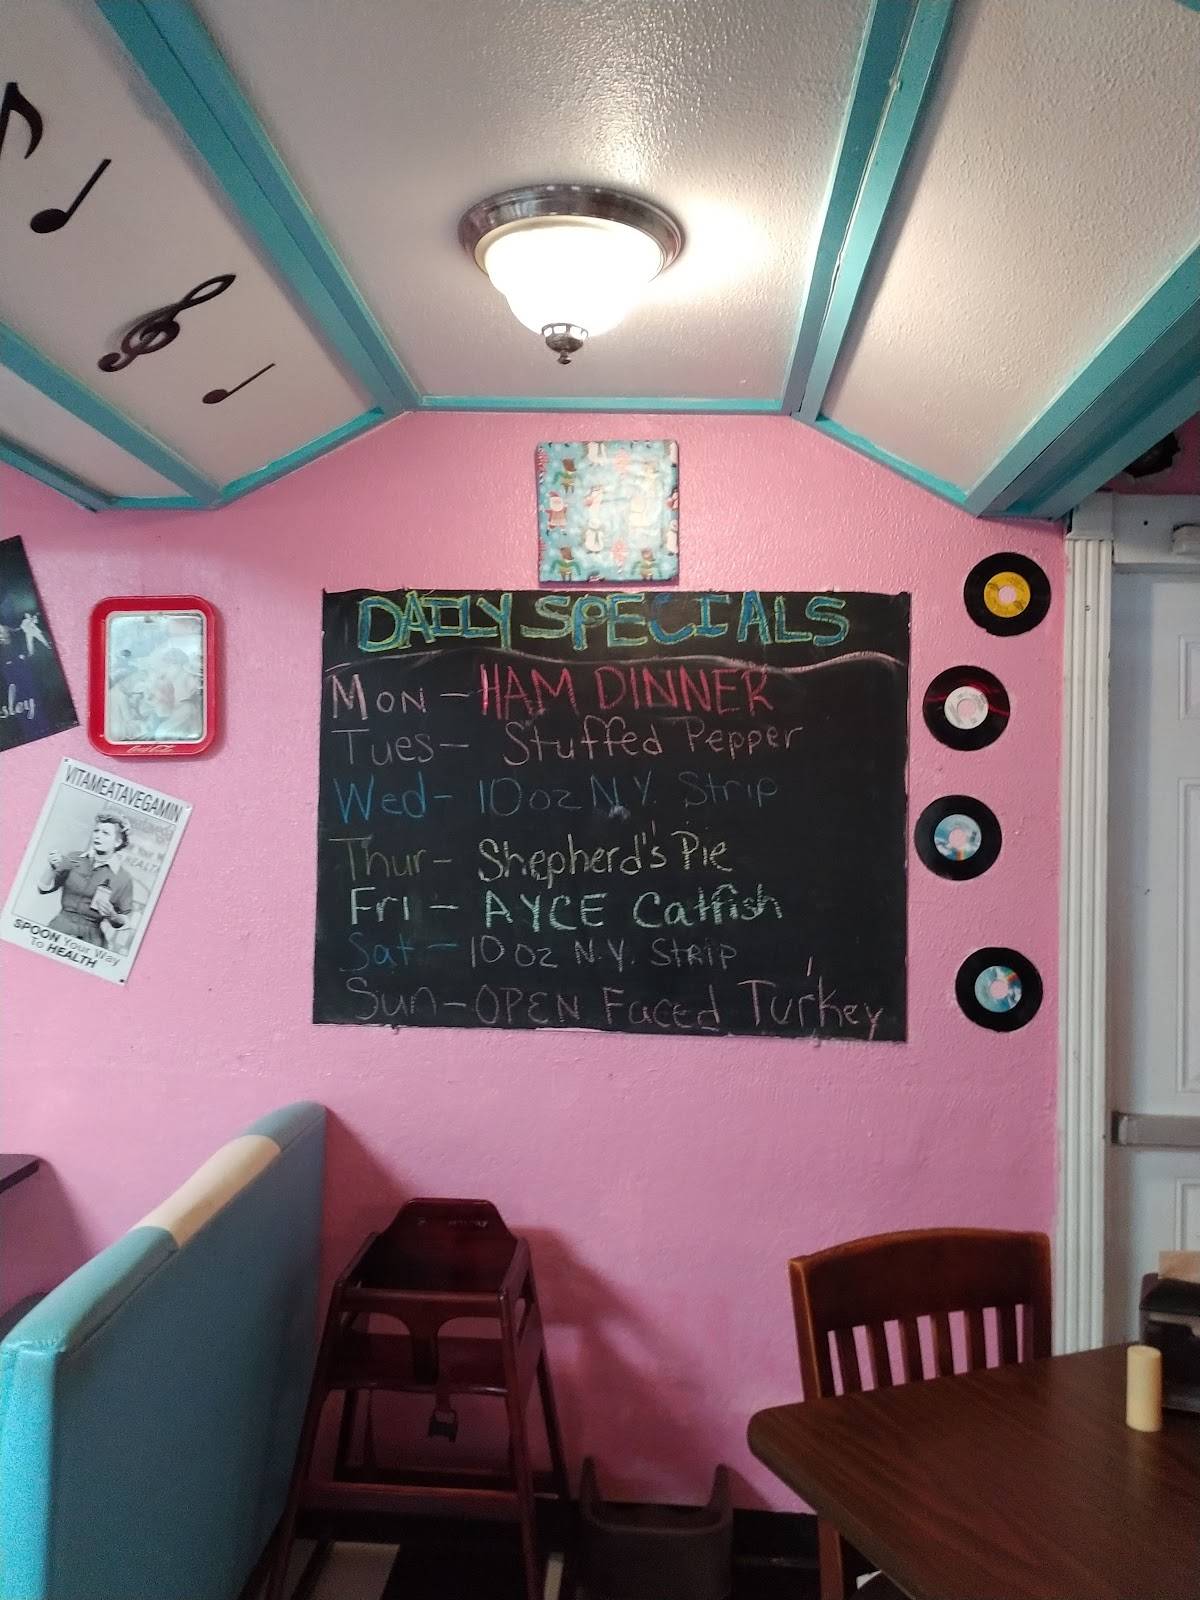 DAILY SPECIALS
MON - HAM DINNER
Tues - Stuffed Pepper
Wed - 10 oz N.Y. Strip
Thur - Shepherd's Pie
Fri - AYCE Catfish
Sat - 10 oz N.Y. Strip
Sun - OPEN Faced Turkey
sley
Coca-Cola
VITAMEATAVEGAMIN
SPOON Your Way
To HEALTH